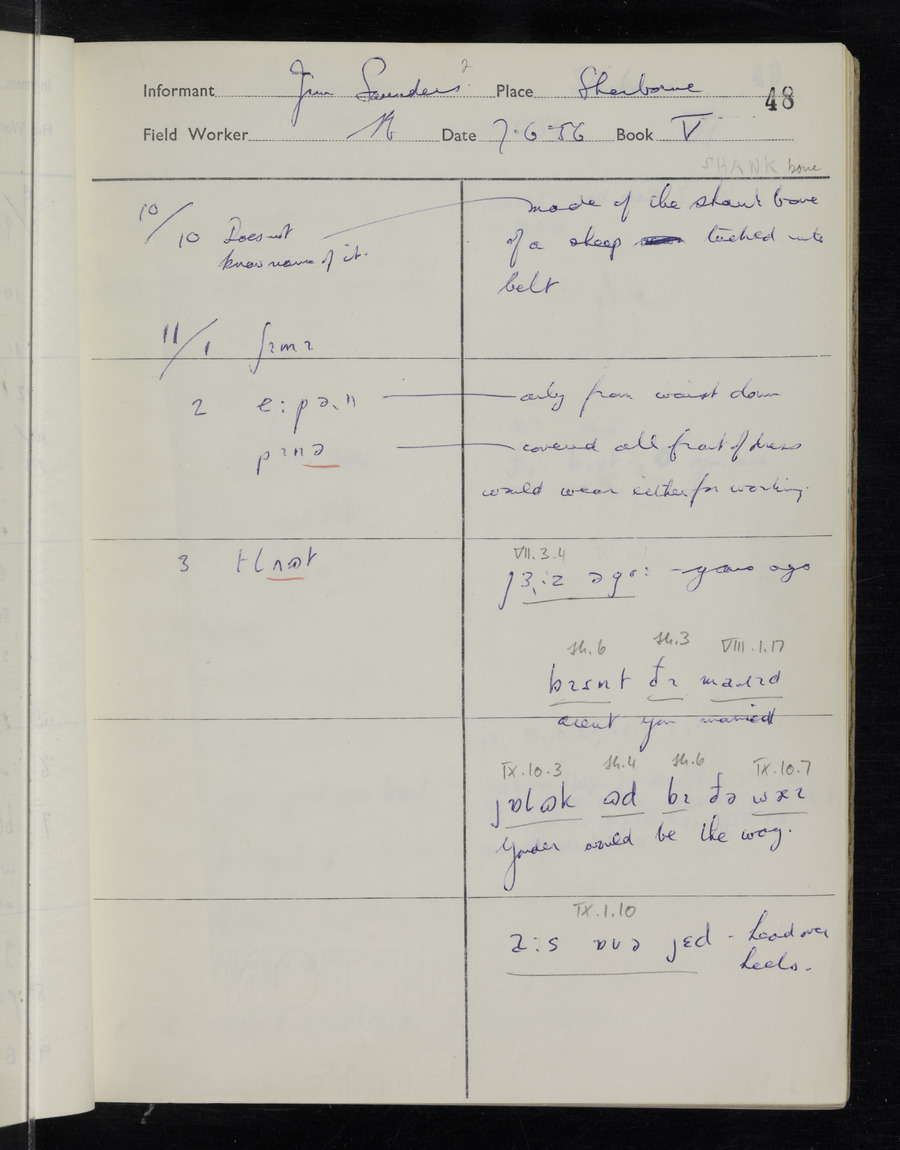 Informant Jim Saunders 2 Place Sherborne 48
Field Worker Date 7.6.56 Book V
SHANK bone
10/10 Does not
know name of it.
made of the shank bone
of a sheep tucked into
belt
11/1 ʃɪmɪ
2 e:pə.n
only from waist down
pɪnə
covered all front of dress
would wear either for working.
3
VII.3.4
jɜ:z əgo: - years ago
Sh.6 Sh.3 VIII.1.17
bɪsnt ðɪ
arent you married
IX.10.3 Sh.4 Sh.6 IX.10.7
əd bɪ ðə wæɪ
Yonder would be the way.
IX.1.10
ɒvə jɛd - head over
heels.